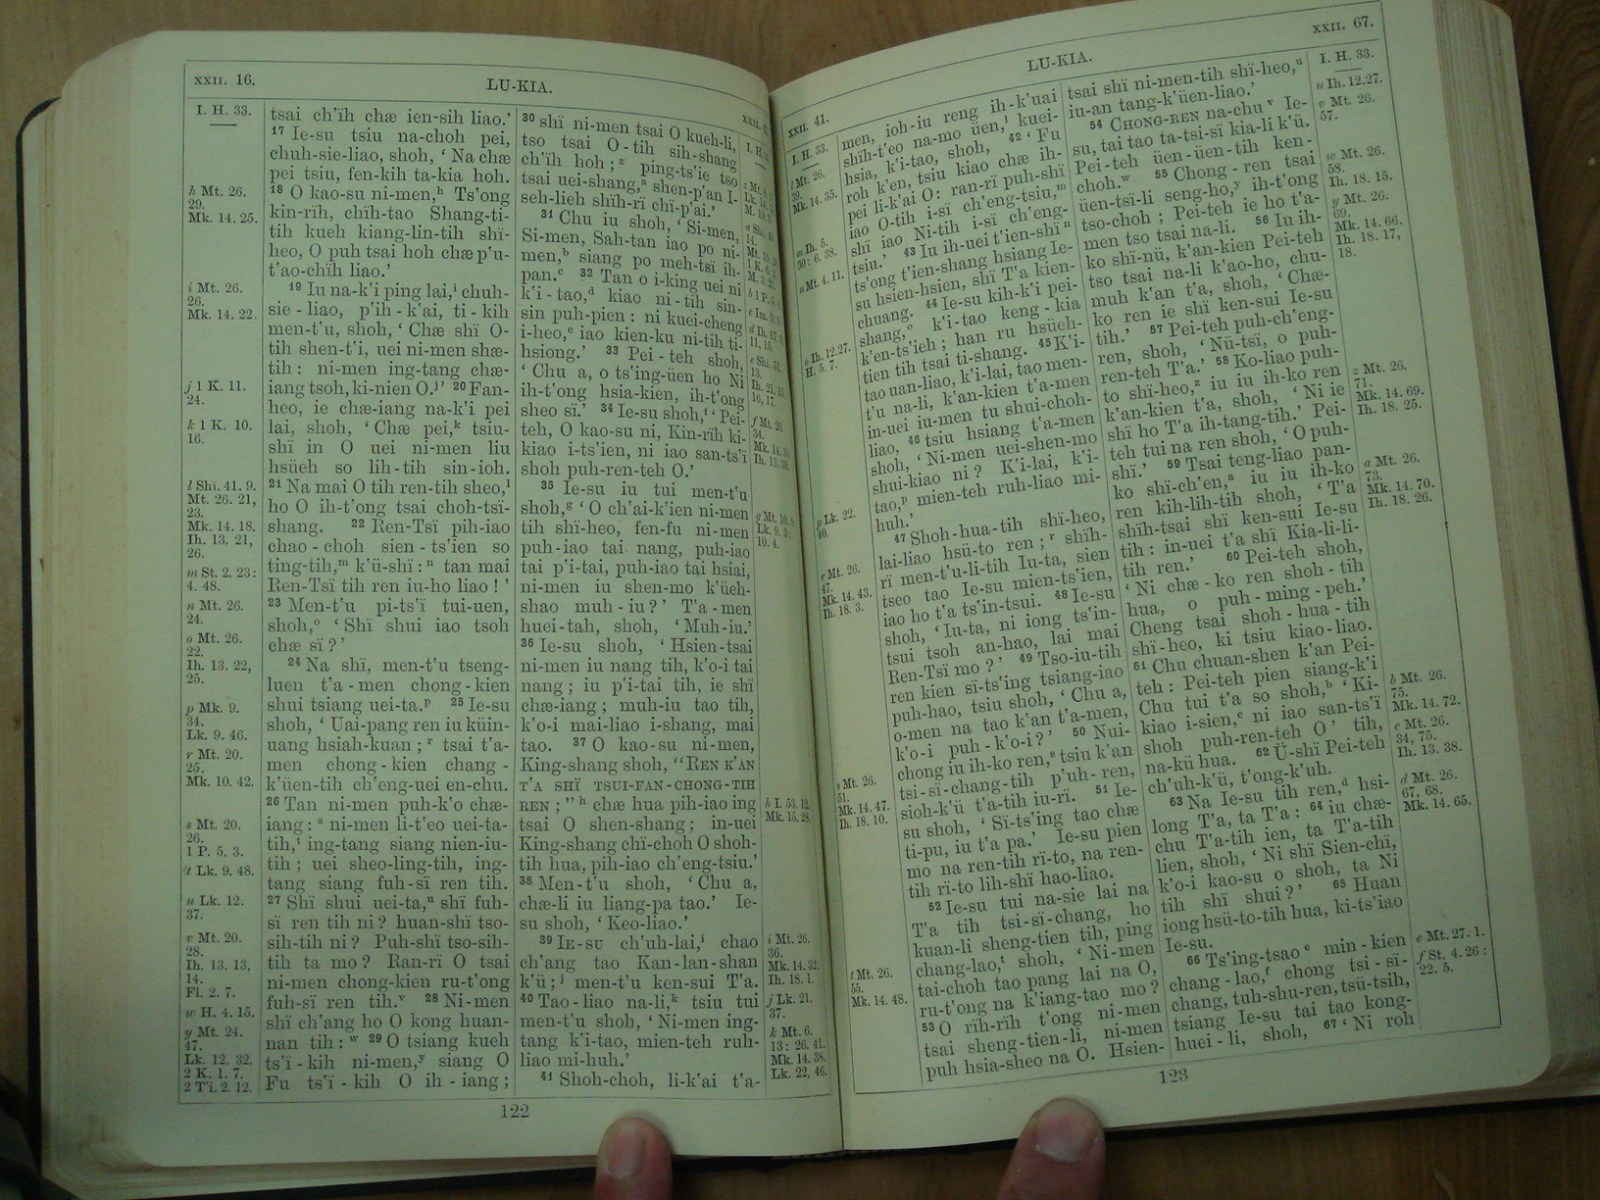 XXII. 16.
LU-KIA.
I. H. 33.
h Mt. 26.
29.
Mk. 14. 25.
i Mt. 26.
26.
Mk. 14. 22.
j 1 K. 11.
24.
k 1 K. 10.
16.
l Shi. 41. 9.
Mt. 26. 21,
23.
Mk. 14. 18.
Ih. 13. 21,
26.
m St. 2. 23:
4. 48.
n Mt. 26.
24.
o Mt. 26.
22.
Ih. 13. 22,
25.
p Mk. 9.
34.
Lk. 9. 46.
r Mt. 20.
25.
Mk. 10. 42.
s Mt. 20.
26.
1 P. 5. 3.
t Lk. 9. 48.
u Lk. 12.
37.
v Mt. 20.
28.
Ih. 13. 13,
14.
Fi. 2. 7.
w H. 4. 15.
y Mt. 24.
47.
Lk. 12. 32.
2 K. 1. 7.
2 T'i. 2. 12.
tsai ch'ïh chæ ien-sih liao.'
17 Ie-su tsiu na-choh pei,
chuh-sie-liao, shoh, ' Na chæ
pei tsiu, fen-kih ta-kia hoh.
18 O kao-su ni-men,h Ts'ong
kin-rïh, chïh-tao Shang-ti-
tih kueh kiang-lin-tih shï-
heo, O puh tsai hoh chæ p'u-
t'ao-chïh liao.'
19 Iu na-k'i ping lai,i chuh-
sie - liao, p'ih - k'ai, ti - kih
men-t'u, shoh, ' Chæ shï O-
tih shen-t'i, uei ni-men shæ-
tih : ni-men ing-tang chæ-
iang tsoh, ki-nien O.j' 20 Fan-
heo, ie chæ-iang na-k'i pei
lai, shoh, ' Chæ pei,k tsiu-
shï in O uei ni-men liu
hsüeh so lih-tih sin-ioh.
21 Na mai O tih ren-tih sheo,l
ho O ih-t'ong tsai choh-tsï-
shang. 22 Ren-Tsï pih-iao
chao - choh sien - ts'ien so
ting-tih,m k'ü-shï : n tan mai
Ren-Tsï tih ren iu-ho liao ! '
23 Men-t'u pi-ts'ï tui-uen,
shoh,o ' Shï shui iao tsoh
chæ sï ? '
24 Na shï, men-t'u tseng-
luen t'a-men chong-kien
shui tsiang uei-ta.p 25 Ie-su
shoh, ' Uai-pang ren iu küin-
uang hsiah-kuan ; r tsai t'a-
men chong-kien chang-
k'üen-tih ch'eng-uei en-chu.
26 Tan ni-men puh-k'o chæ-
iang : s ni-men li-t'eo uei-ta-
tih,t ing-tang siang nien-iu-
tih ; uei sheo-ling-tih, ing-
tang siang fuh-sï ren tih.
27 Shï shui uei-ta,u shï fuh-
sï ren tih ni ? huan-shï tso-
sih-tih ni ? Puh-shï tso-sih-
tih ta mo ? Ran-rï O tsai
ni-men chong-kien ru-t'ong
fuh-sï ren tih.v 28 Ni-men
shï ch'ang ho O kong huan-
nan tih : w 29 O tsiang kueh
ts'ï - kih ni-men,y siang O
Fu ts'ï - kih O ih - iang ;
30 shï ni-men tsai O kueh-li,
tso tsai O-tih sih-shang
ch'ïh hoh ; z ping-ts'ie tso
tsai uei-shang,a shen-p'an I-
seh-lieh shïh-rï chï-p'ai.'
31 Chu iu shoh, ' Si-men,
Si-men, Sah-tan iao po ni-
men,b siang po meh-tsï ih-
pan.c 32 Tan o i-king uei ni
k'i - tao,d kiao ni-tih sin-
sin puh-pien : ni kuei-cheng
i-heo,e iao kien-ku ni-tih ti-
hsiong.' 33 Pei - teh shoh,
' Chu a, o ts'ing-üen ho Ni
ih-t'ong hsia-kien, ih-t'ong
sheo sï.' 34 Ie-su shoh,f ' Pei-
teh, O kao-su ni, Kin-rïh ki-
kiao i-ts'ien, ni iao san-ts'ï
shoh puh-ren-teh O.'
35 Ie-su iu tui men-t'u
shoh,g ' O ch'ai-k'ien ni-men
tih shï-heo, fen-fu ni-men
puh-iao tai nang, puh-iao
tai p'i-tai, puh-iao tai hsiai,
ni-men iu shen-mo k'üeh-
shao muh - iu ? ' T'a - men
huei-tah, shoh, ' Muh-iu.'
36 Ie-su shoh, ' Hsien-tsai
ni-men iu nang tih, k'o-i tai
nang ; iu p'i-tai tih, ie shï
chæ-iang ; muh-iu tao tih,
k'o-i mai-liao i-shang, mai
tao. 37 O kao-su ni-men,
King-shang shoh, "REN K'AN
T'A SHÏ TSUI-FAN-CHONG-TIH
REN ; " h chæ hua pih-iao ing
tsai O shen-shang ; in-uei
King-shang chï-choh O shoh-
tih hua, pih-iao ch'eng-tsiu.'
38 Men-t'u shoh, ' Chu a,
chæ-li iu liang-pa tao.' Ie-
su shoh, ' Keo-liao.'
39 IE-SU ch'uh-lai,i chao
ch'ang tao Kan-lan-shan
k'ü ; j men-t'u ken-sui T'a.
40 Tao-liao na-li,k tsiu tui
men-t'u shoh, ' Ni-men ing-
tang k'i-tao, mien-teh ruh-
liao mi-huh.'
41 Shoh-choh, li-k'ai t'a-
h I. 53. 12.
Mk. 15. 28.
i Mt. 26.
36.
Mk. 14. 32.
Ih. 18. 1.
j Lk. 21.
37.
k Mt. 6.
13 : 26. 41.
Mk. 14. 38.
Lk. 22, 46.
122
XXII. 41.
LU-KIA.
XXII. 67.
I. H. 33.
l Mt. 26.
39.
Mk. 14. 35.
m Ih. 5.
30 : 6. 38.
n Mt. 4. 11.
o Ih. 12.27.
H. 5. 7.
p Lk. 22.
40.
r Mt. 26.
47.
Mk. 14. 43.
Ih. 18. 3.
s Mt. 26.
51.
Mk. 14. 47.
Ih. 18. 10.
t Mt. 26.
55.
Mk. 14. 48.
men, ioh-iu reng ih-k'uai
shïh-t'eo na-mo üen,l kuei-
hsia, k'i-tao, shoh, 42 ' Fu
roh k'en, tsiu kiao chæ ih-
pei li-k'ai O : ran-rï puh-shï
iao O-tih i-sï ch'eng-tsiu,m
shï iao Ni-tih i-sï ch'eng-
tsiu.' 43 Iu ih-uei t'ien-shï n
ts'ong t'ien-shang hsiang Ie-
su hsien-hsien, shï T'a kien-
chuang. 44 Ie-su kih-k'i pei-
shang,o k'i-tao keng - kia
k'en-ts'ieh ; han ru hsüeh-
tien tih tsai ti-shang. 45 K'i-
tao uan-liao, k'i-lai, tao men-
t'u na-li, k'an-kien t'a-men
in-uei iu-men tu shui-choh-
liao, 46 tsiu hsiang t'a-men
shoh, ' Ni-men uei-shen-mo
shui-kiao ni ? K'i-lai, k'i-
tao,p mien-teh ruh-liao mi-
huh.'
47 Shoh-hua-tih shï-heo,
lai-liao hsü-to ren ; r shïh-
rï men-t'u-li-tih Iu-ta, sien
tseo tao Ie-su mien-ts'ien,
iao ho t'a ts'in-tsui. 48 Ie-su
shoh, ' Iu-ta, ni iong ts'in-
tsui tsoh an-hao, lai mai
Ren-Tsï mo ? ' 49 Tso-iu-tih
ren kien sï-ts'ing tsiang-iao
puh-hao, tsiu shoh, ' Chu a,
o-men na tao k'an t'a-men,
k'o-i puh - k'o-i ? ' 50 Nui-
chong iu ih-ko ren,s tsiu k'an
tsi-sï-chang-tih p'uh-ren,
sioh-k'ü t'a-tih iu-rï. 51 Ie-
su shoh, ' Sï-ts'ing tao chæ
ti-pu, iu t'a pa.' Ie-su pien
mo na ren-tih rï-to, na ren-
tih rï-to lih-shï hao-liao.
52 Ie-su tui na-sie lai na
T'a tih tsi-sï-chang, ho
kuan-li sheng-tien tih, ping
chang-lao,t shoh, ' Ni-men
tai-choh tao pang lai na O,
ru-t'ong na k'iang-tao mo ?
53 O rïh-rïh t'ong ni-men
tsai sheng-tien-li, ni-men
puh hsia-sheo na O. Hsien-
tsai shï ni-men-tih shï-heo,u
iu-an tang-k'üen-liao.'
54 CHONG-REN na-chu v Ie-
su, tai tao ta-tsi-sï kia-li k'ü.
Pei-teh üen-üen-tih ken-
choh.w 55 Chong - ren tsai
üen-tsï-li seng-ho,y ih-t'ong
tso-choh ; Pei-teh ie ho t'a-
men tso tsai na-li. 56 Iu ih-
ko shï-nü, k'an-kien Pei-teh
tso tsai na-li k'ao-ho, chu-
muh k'an t'a, shoh, ' Chæ-
ko ren ie shï ken-sui Ie-su
tih.' 57 Pei-teh puh-ch'eng-
ren, shoh, ' Nü-tsï, o puh-
ren-teh T'a.' 58 Ko-liao puh-
to shï-heo,z iu iu ih-ko ren
k'an-kien t'a, shoh, ' Ni ie
shï ho T'a ih-tang-tih.' Pei-
teh tui na ren shoh, ' O puh-
shï.' 59 Tsai teng-liao pan-
ko shï-ch'en,a iu iu ih-ko
ren kih-lih-tih shoh, ' T'a
shïh-tsai shï ken-sui Ie-su
tih : in-uei t'a shï Kia-li-li-
tih ren.' 60 Pei-teh shoh,
' Ni chæ - ko ren shoh - tih
hua, o puh - ming - peh.'
Cheng tsai shoh - hua - tih
shï-heo, ki tsiu kiao-liao.
61 Chu chuan-shen k'an Pei-
teh : Pei-teh pien siang-k'i
Chu tui t'a so shoh,b ' Ki-
kiao i-sien,c ni iao san-ts'ï
shoh puh-ren-teh O ' tih,
na-kü hua. 62 Ü-shï Pei-teh
ch'uh-k'ü, t'ong-k'uh.
63 Na Ie-su tih ren,d hsi-
long T'a, ta T'a : 64 iu chæ-
chu T'a-tih ien, ta T'a-tih
lien, shoh, ' Ni shï Sien-chï,
k'o-i kao-su o shoh, ta Ni
tih shï shui ? ' 65 Huan
iong hsü-to-tih hua, ki-ts'iao
Ie-su.
66 Ts'ing-tsao e min - kien
chang - lao,f chong tsi - sï-
chang, tuh-shu-ren, tsü-tsih,
tsiang Ie-su tai tao kong-
huei - li, shoh, 67 ' Ni roh
I. H. 33.
u Ih. 12.27.
v Mt. 26.
57.
w Mt. 26.
58.
Ih. 18. 15.
y Mt. 26.
69.
Mk. 14. 66.
Ih. 18. 17,
18.
z Mt. 26.
71.
Mk. 14. 69.
Ih. 18. 25.
a Mt. 26.
73.
Mk. 14. 70.
Ih. 18. 26.
b Mt. 26.
75.
Mk. 14. 72.
c Mt. 26.
34, 75.
Ih. 13. 38.
d Mt. 26.
67, 68.
Mk. 14. 65.
e Mt. 27. 1.
f St. 4. 26 :
22. 5.
123